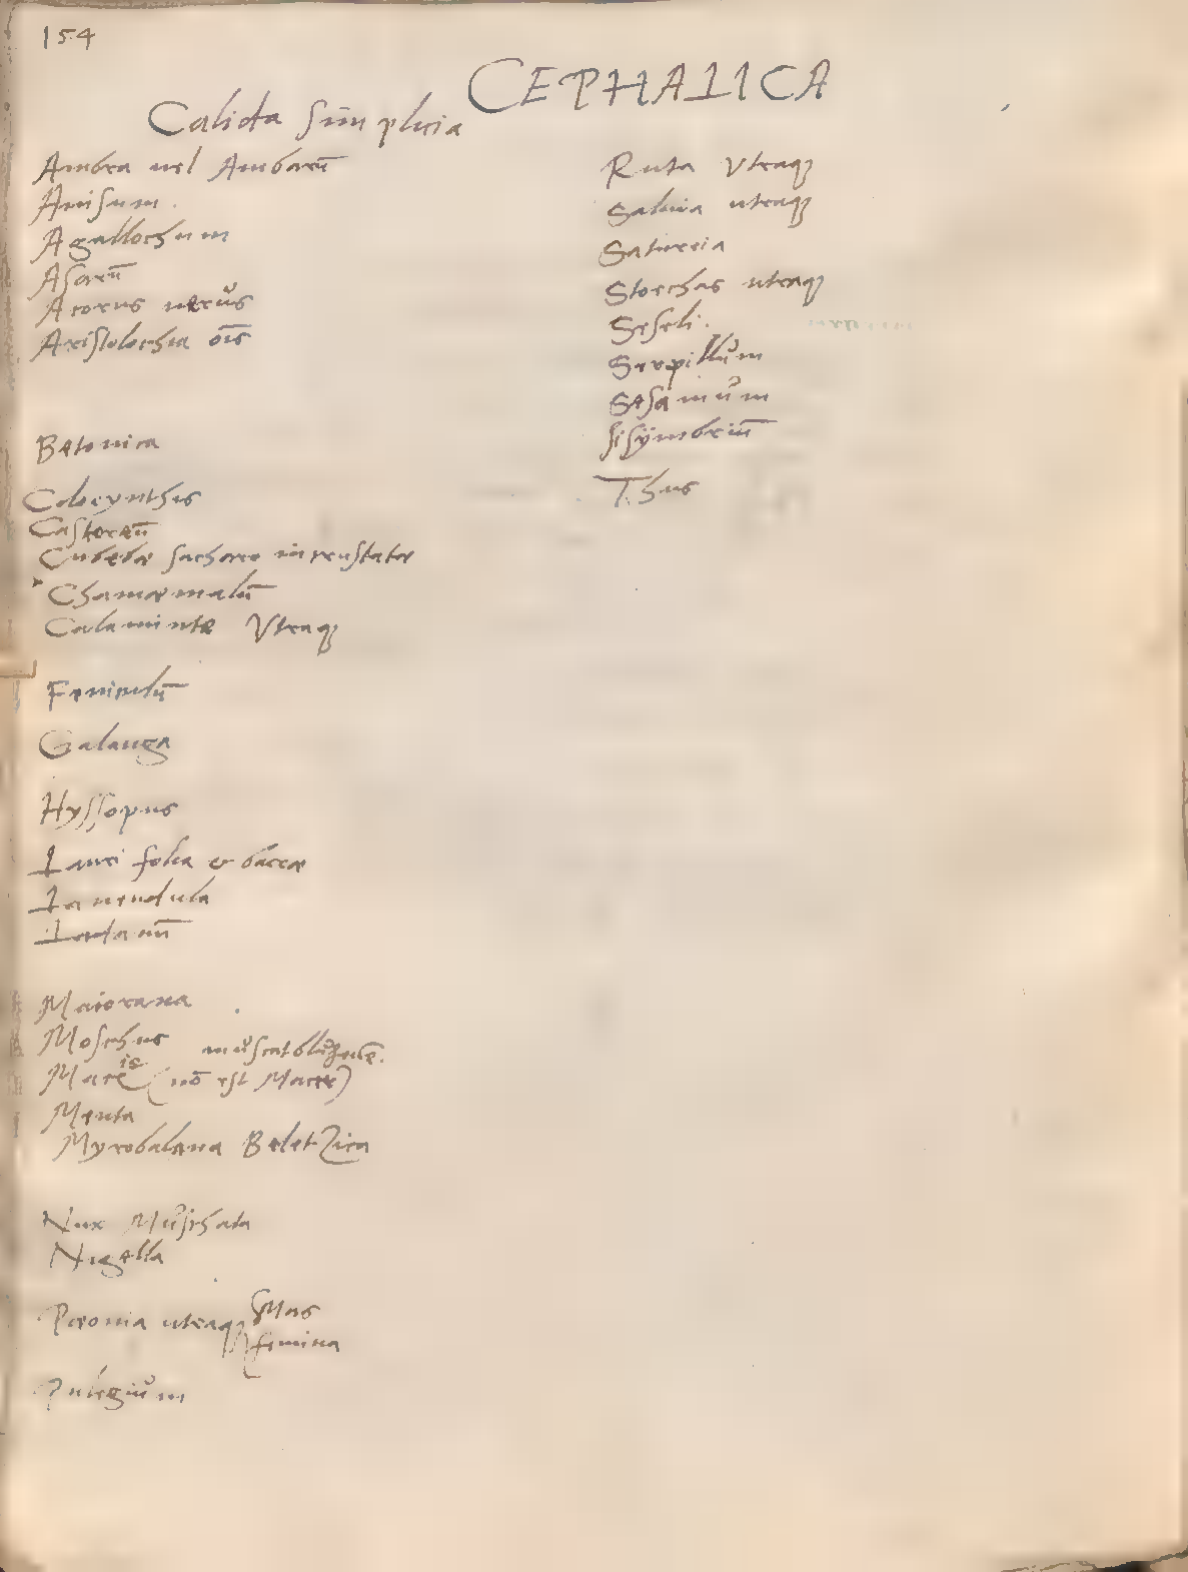 154
CEPHALICA
Calida simplicia
Ambra vel Ambarū
Anisum.
Agallochum
Asarū
Acorus verus
Aristolochia oīs
Betonica
Colocynthis
Castoreū
Cubebæ sacharo incrustatæ
Chamæmalū
Calamintæ Vtraq
Feniculū
Galanga
Hyssopus
Lauri folia & baccæ
Lavendula
Ladanū
Maiorana
Moschus
muscatblu
Mace is (nō est Macer)
Menta
Myrobalana
Nux Muschata
Nigella
Pæonia utraq Mas
femina
Pulegium
Ruta Vtraq
Salvia utraq
Satureia
Stoechas utraq
Seseli.
Serpillum
Sesamum
Sisymbriū
Thus